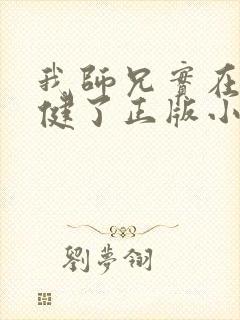 我師兄實在
健了正版小
劉夢翎